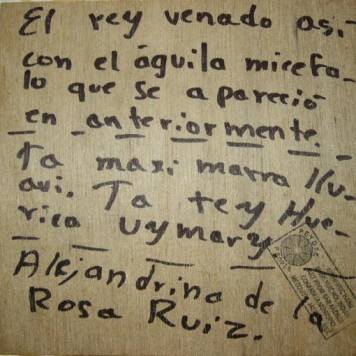 El rey venado asi-
con el águila micefa-
lo que se apareció
en anteriormente.
Ta maxi marra Hu-
avi. Ta tey Hue-
rica Uymary
Alejandrina de la
Rosa Ruiz.